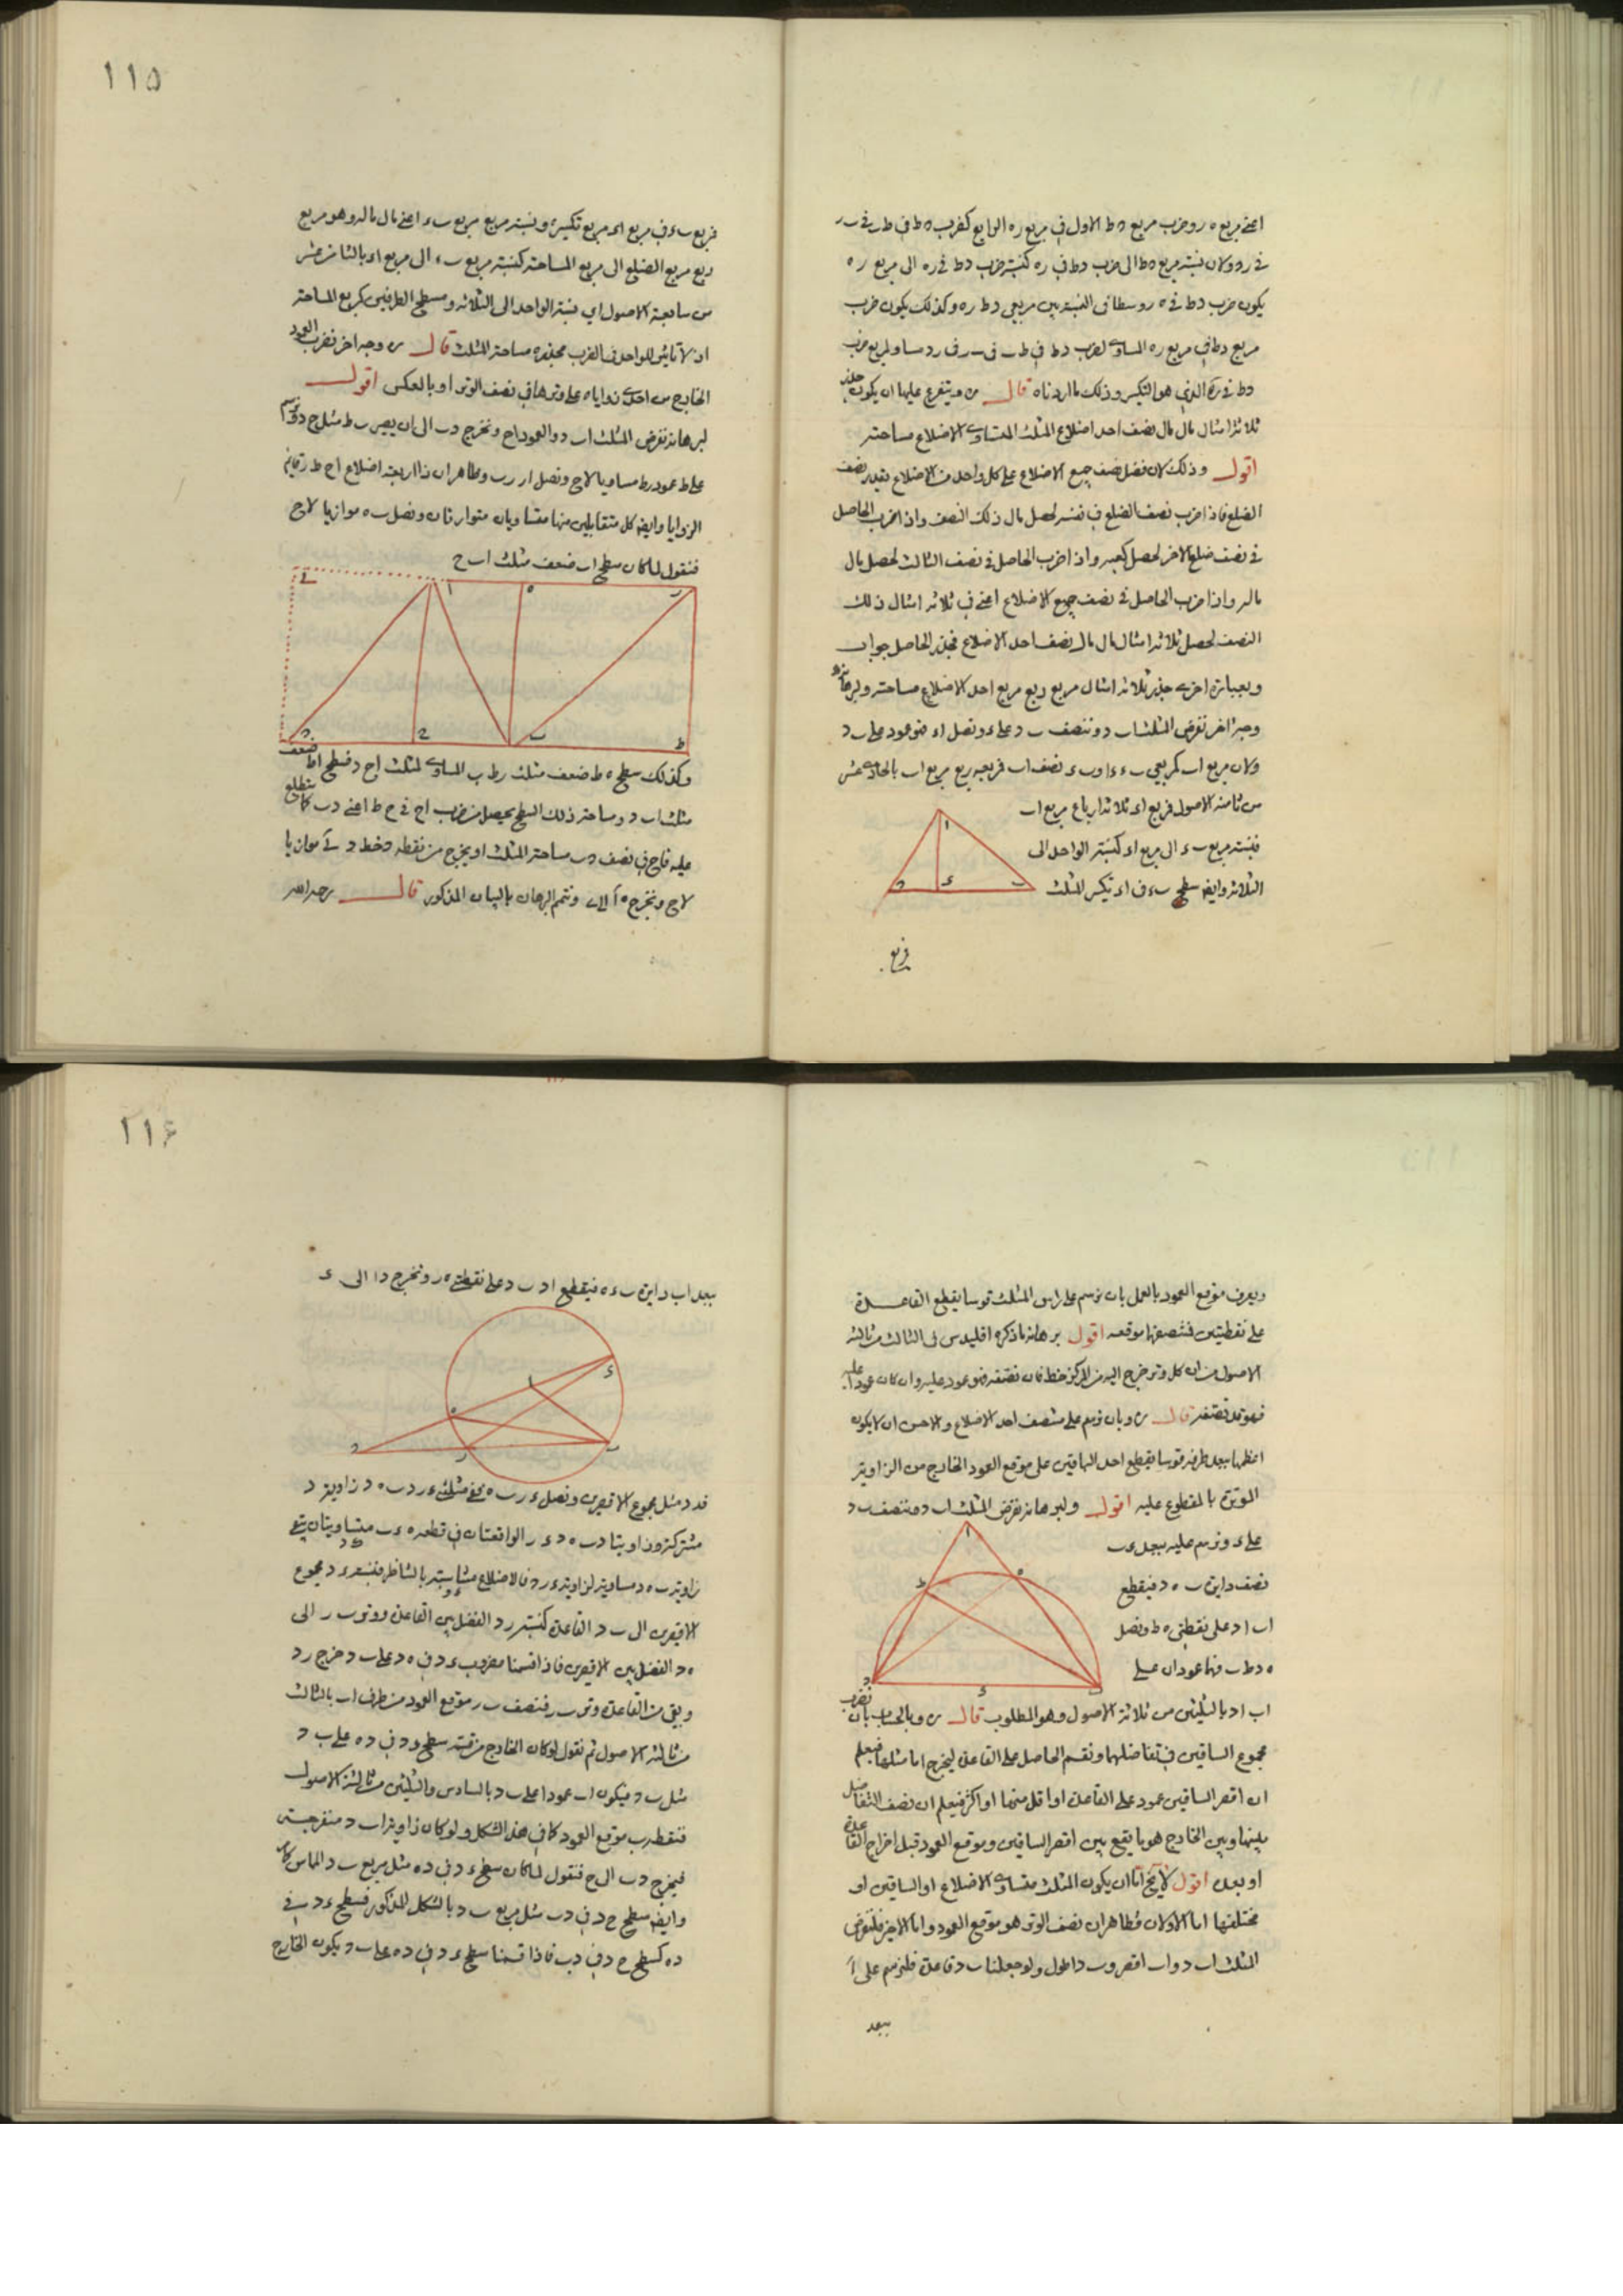 ١١٥
اعنى مربع ه ر وضرب مربع ه ط الاول فى مربع ره الرابع كضرب ه ط فى ط ب فى ب ر
يكون ضرب د ط فى ه ر وسطا فى النسبة بين مربعى د ط ره وكذلك يكون ضرب
مربع د ط فى مربع ره المساوى لضرب د ط فى ط ب فى ب ر فى ر د مساو لمربع ضرب
د ط فى ره الذى هو التكسير وذلك ما اردناه قال ويتفرع عليها ان يكون جذر
ثلاثة امثال مال مال نصف احد اضلاع المثلث المتساوى الاضلاع مساحته
اقول وذلك لان فضل نصف جميع الاضلاع على كل واحد من الاضلاع بقدر نصف
الضلع فاذا ضرب نصف الضلع فى نفسه لحصل مال ذلك النصف واذا ضرب الحاصل
فى نصف ضلع الاخر لحصل كعبه واذا ضرب الحاصل فى نصف الثالث لحصل مال
ماله واذا ضرب الحاصل فى نصف جميع الاضلاع اعنى فى ثلاثة امثال ذلك
النصف لحصل ثلاثة امثال مال مال نصف احد الاضلاع فجذر الحاصل جواب
وبعبارة اخرى جذر ثلاثة امثال مربع ربع مربع احد الاضلاع مساحته ولبرهانه
وجه اخر نفرض المثلث ا ب د وننصف ب د على ء ونصل ا ء فهو عمود على ب د
ولان مربع ا ب كمربعى ب ء ء ا و ب ء نصف ا ب فمربعه ربع مربع ا ب بالحادى عشر
من ثامنة الاصول فمربع ا ء ثلاثة ارباع مربع ا ب
فنسبة مربع ب ء الى مربع ا ء كنسبة الواحد الى
الثلاثة وايضا سطح ب ء فى ا ء تكسير المثلث
فمربع
فمربع ب ء فى مربع ا ء مربع تكسيره ونسبة مربع مربع ب ء اعنى مال ماله وهو مربع
ربع مربع الضلع الى مربع المساحة كنسبة مربع ب ء الى مربع ا ء بالثامن عشر
من سابعة الاصول اى نسبة الواحد الى الثلاثة ومسطح الطرفين كمربع المساحة
اذ لا تأثير للواحد فى الضرب فجذره مساحة المثلث قال وجه اخر نضرب العمود
الخارج من احدى زواياه على وترها فى نصف الوتر او بالعكس اقول
لبرهانه نفرض المثلث ا ب د والعمود ا ح ونخرج د ب الى ان يصير ب ط مثل ح د ونرسم
على ط عمود ر ط مساويا لا ح ونصل ا ر ر ب وظاهر ان ذا اربعة اضلاع ا ح ط ر قائم
الزوايا وايضا كل متقابلين منها متساويان متوازيان ونصل ب ه موازيا لا ح
فنقول لما كان سطح ا ب ضعف مثلث ا ب ح
وكذلك سطح ه ط ضعف مثلث ر ط ب المساوى لمثلث ا ح د فسطح ا ط ضعف
مثلث ا ب د ومساحة ذلك السطح يحصل من ضرب ا ح فى ح ط اعنى د ب
عليه فا ح فى نصف د ب مساحة المثلث او يخرج من نقطة د خط د ى موازيا
لا ح ونخرج ه ا الى ى ونتمم البرهان بالبيان المذكور قال رحمه الله
١١٦
ويعرف موقع العمود بالعمل بان نرسم على راس المثلث قوسا يقطع القاعدة
على نقطتين فمنتصفها موقعه اقول برهانه ما ذكره اقليدس فى الثالث من ثالثة
الاصول من ان كل وتر خرج اليه من المركز خط فان نصفه فهو عمود عليه وان كان عمودا عليه
فهو قد نصفه قال وبان نرسم على منتصف احد الاضلاع والاحسن ان لا يكون
اعظمها ببعد طرفه قوسا يقطع احد الباقيين على موقع العمود الخارج من الزاوية
الموترة بالمقطوع عليه اقول ولبرهانه نفرض المثلث ا ب د ومنتصف ب د
على ء ونرسم عليه ببعد ء ب
نصف دايرة ب ه د فيقطع
ا ب ا د على نقطتى ه ط ونصل
ه د ط ب فهما عمودان على
ا ب ا د بالثلثين من ثلاثة الاصول وهو المطلوب قال وبالحساب بان نضرب
مجموع الساقين فى تفاضلهما ونقسم الحاصل على القاعدة ليخرج اما مثلها فيعلم
ان اقصر الساقين عمود على القاعدة او اقل منها او اكثر فيعلم ان نصف التفاضل
بينها وبين الخارج هو ما يقع بين اقصر الساقين وموقع العمود قبل اخراج القاعدة
او بعده اقول لا يخ اما ان يكون المثلث متساوى الاضلاع او الساقين او
مختلفها اما الاولان فظاهر ان نصف الوتر هو موقع العمود واما الاخير فلنفرض
المثلث ا ب د و ا ب اقصر و ب د اطول ولو جعلنا ب د قاعدة فلنرسم على ا
ببعد
ببعد ا ب دايرة ب ء ه فيقطع ا د ب د على نقطتى ه ر ونخرج د ا الى ء
فد ء مثل مجموع الاقصرين ونصل ء ر ب ه ففى مثلثى ء ر د ب ه د زاوية د
مشتركة وزاويتا د ب ه د ء ر الواقعتان فى قطعة ه ء ب متساويتان يبقى
زاوية ب ه د مساوية لزاوية ء ر د فالاضلاع متناسبة بالتناظر فنسبة ء د مجموع
الاقصرين الى ب د القاعدة كنسبة ر د الفضل بين القاعدة ووتر ب ر الى
ه د الفضل بين الاقصرين فاذا قسمنا مضروب ء د فى ه د على ب د خرج ر د
وبقى من القاعدة وتر ب ر فنصف ب ر موقع العمود من طرف ا ب بالثالث
من ثالثة الاصول ثم نقول لو كان الخارج من قسمة سطح ء د فى د ه على ب د
مثل ب د فيكون ا ب عمودا على ب د بالسادس والثلثين من ثالثة الاصول
فنقطة ب موقع العمود كما فى هذا الشكل ولو كان زاوية ا ب د منفرجة
فيخرج د ب الى ح فنقول لما كان سطح ء د فى د ه مثل مربع ب د المماس
وايضا سطح ح د فى د ب مثل مربع ب د بالشكل المذكور فسطح ء د فى
د ه كسطح ح د فى د ب فاذا قسمنا سطح ء د فى د ه على ب د يكون الخارج